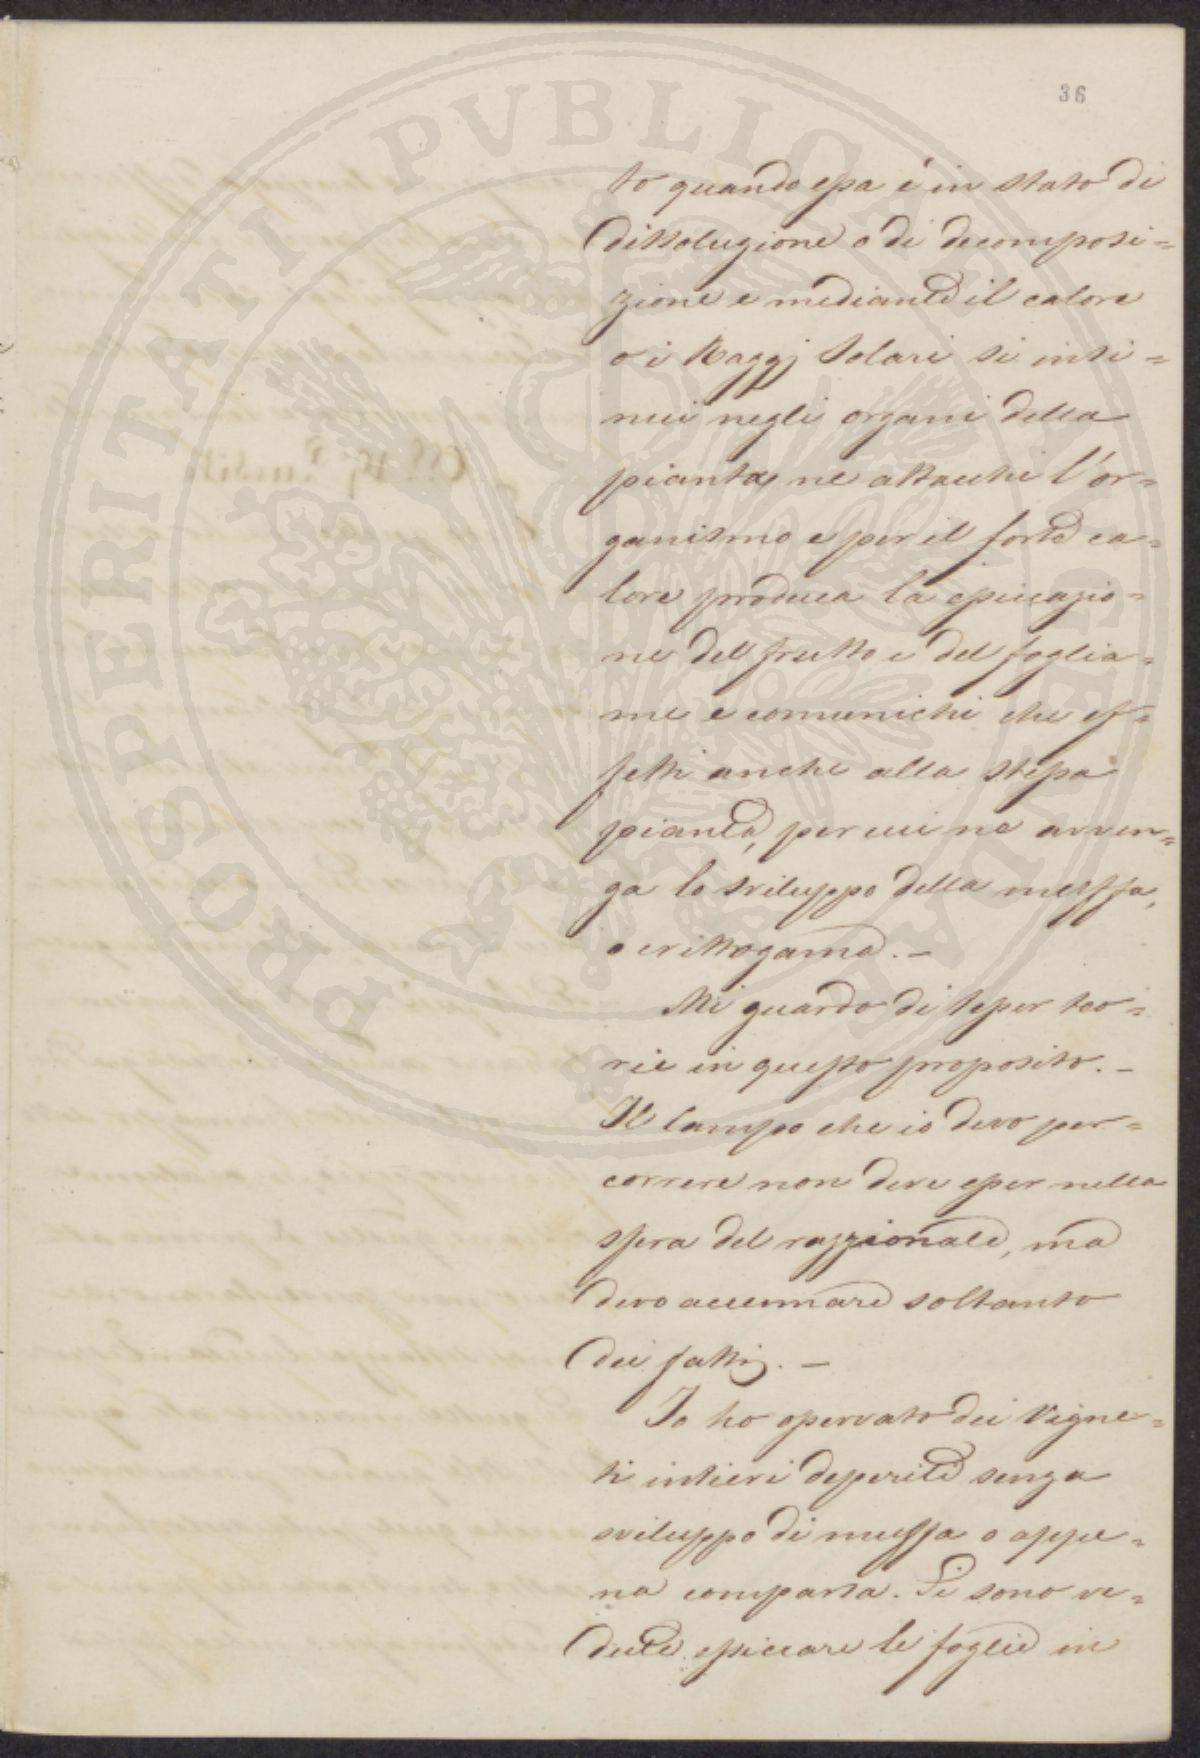 36
to quando essa è in stato di
dissoluzione o di decomposi=
zione e mediante il calore
o i Raggj Solari si insi=
nui negli organi della
pianta, ne attacchi l'or=
ganismo e per il forte ca=
lore produca la essiccazio=
ne del frutto e del foglia=
me e comunichi che ef=
fetti anche alla stessa
pianta, per cui ne avven=
ga lo sviluppo della muffa,
o crittogama. –
Mi guardo di tesser teo=
rie in questo proposito. –
Il Campo che io devo per=
correre non deve esser nella
sfera del razzionale, ma
devo accennare soltanto
dei fatti. –
Io ho osservato dei Vigne=
ti intieri deperiti senza
sviluppo di muffa o appe=
na comparsa. Si sono ve=
dute essiccare le foglie in
PROSPERITATI PVBLICAE AVGENDAE